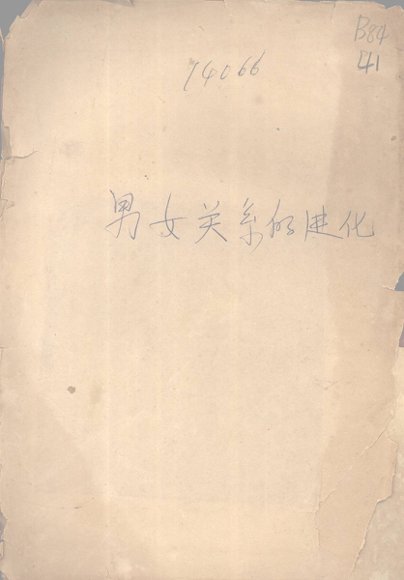 B84
41
14066
男女关系的进化